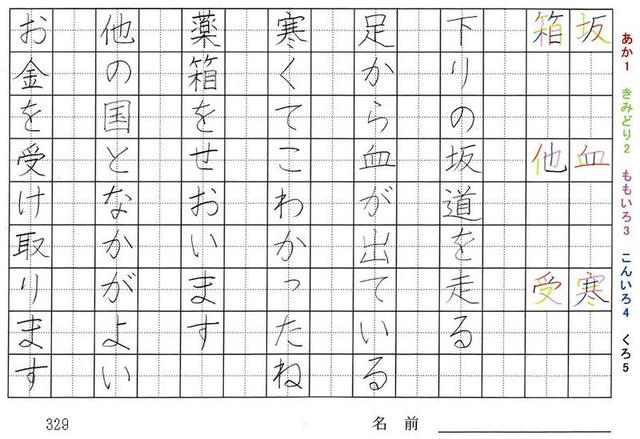 あか1 きみどり2 ももいろ3 こんいろ4 くろ5
坂 血 寒
箱 他 受
下りの坂道を走る
足から血が出ている
寒くてこわかったね
薬箱をせおいます
他の国となかがよい
お金を受け取ります
329
名前